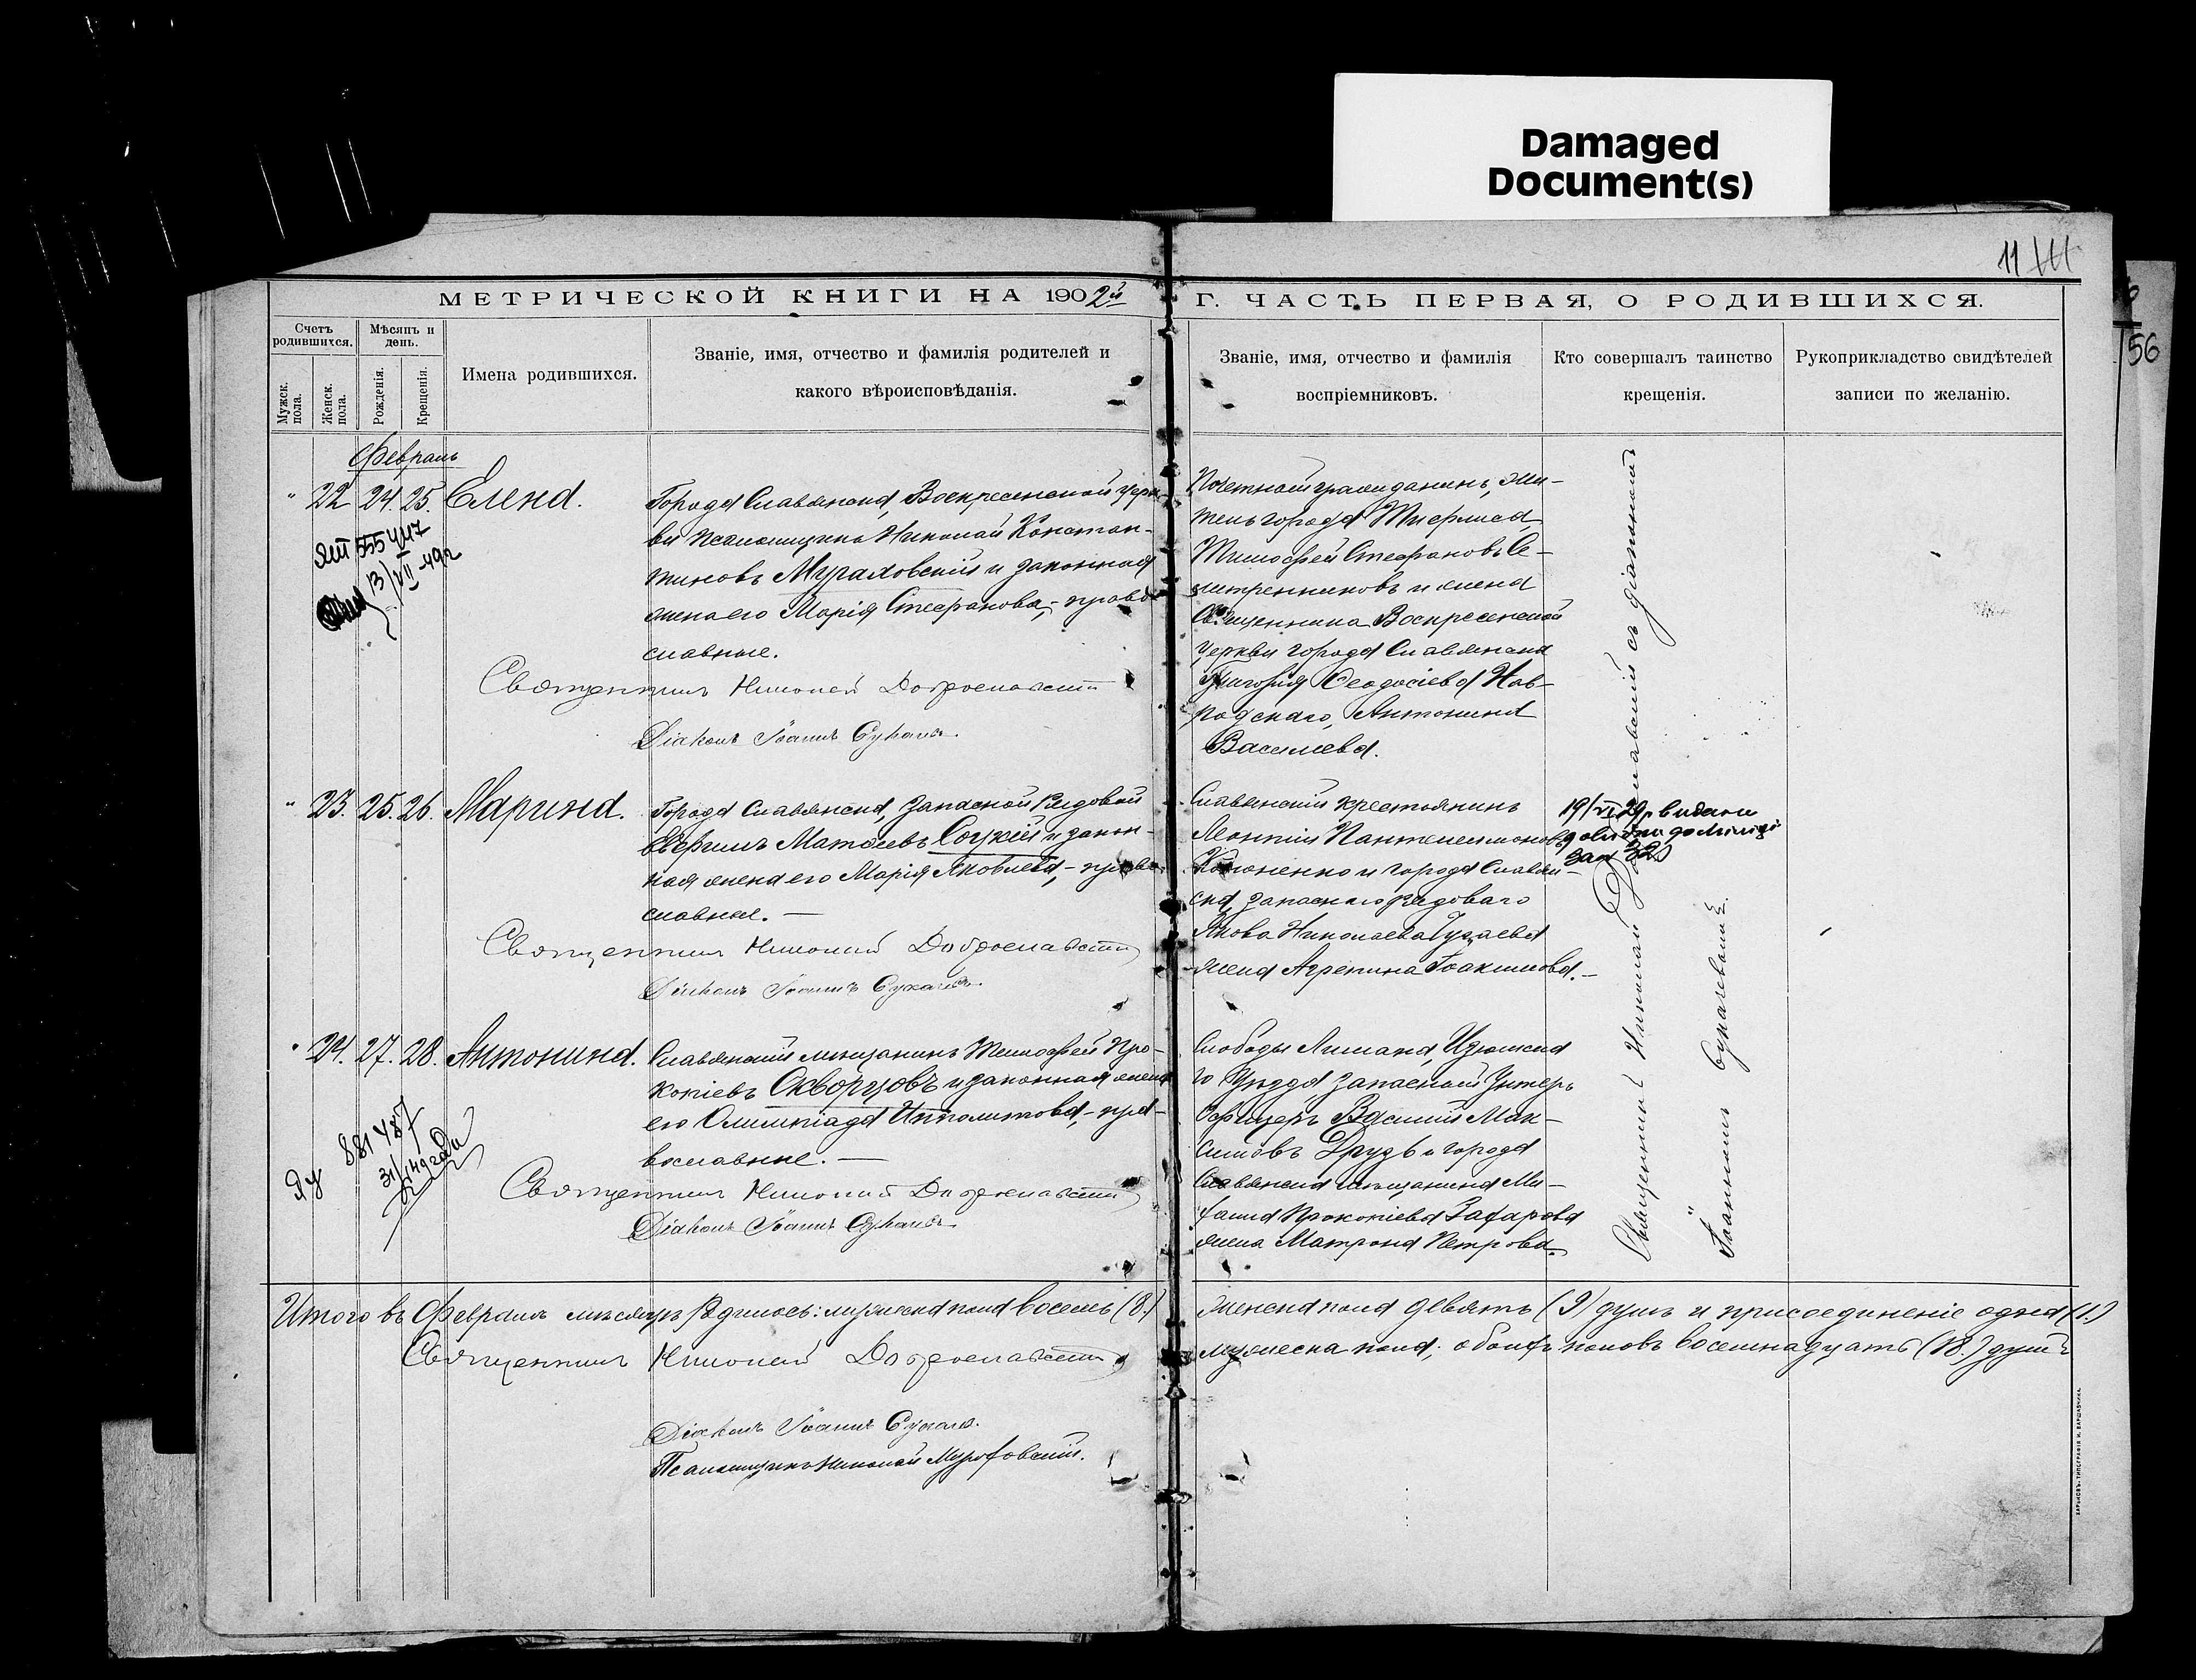 Damaged
Document(s)
11
56
МЕТРИЧЕСКОЙ КНИГИ НА 1902й
Г. ЧАСТЬ ПЕРВАЯ, О РОДИВШИХСЯ.
Счетъ родившихся.
Мужск. пола.
Женск. пола.
Мѣсяцъ и день.
Рожденія.
Крещенія.
Имена родившихся.
Званіе, имя, отчество и фамилія родителей и
какого вѣроисповѣданія.
Званіе, имя, отчество и фамилія
воспріемниковъ.
Кто совершалъ таинство
крещенія.
Рукоприкладство свидѣтелей
записи по желанію.
Февраль
" 22 24. 25. Елена.
555447
13/VII-49г
Города Славянска, Воскресенской церк-
ви псаломщикъ Николай Констан-
тиновъ Мураховскій и законная
жена его Марія Стефанова, - право-
славные.
Священникъ Николай Доброславскій
Діаконъ Іоаннъ
Почетный гражданинъ, жи-
тель города Тифлиса,
Тимофей Стефановъ
и жена
Священника Воскресенской
церкви города Славянска
Григорія Феодосіева Нав-
родскаго, Антонина
Васильева.
" 23. 25. 26. Марина.
Города Славянска, запасной рядовой
Ефимъ Матѳіевъ Соцкій и закон-
ная жена его Марія Яковлева, - право-
славные. —
Священникъ Николай Доброславскій
Діаконъ Іоаннъ
Славянскій крестьянинъ
Леонтій Пантелеимоновъ
Кононенко и города Славян-
ска, запаснаго рядоваго
Якова Николаева
жена Агрепина Іоакимова. —
19/VI 29р видано
" 24. 27. 28. Антонина.
881487
Славянскій мѣщанинъ Тимофей Про-
копіевъ Скворцовъ и законная жена
его Олимпіада Ипполитова, - пра-
вославные. —
Священникъ Николай Доброславскій
Діаконъ Іоаннъ
Слободы Лимана, Изюмска
го Уѣзда запасный Унтеръ
Офицеръ Василій Мак-
симовъ Друзь и города
Славянска мѣщанина Ми-
хаила Прокопіева Захарова
жена Матрона Петрова.
Священникъ Николай Доброславскій съ діакономъ
Іоанномъ
Итого въ Февралѣ мѣсяцѣ родилось: мужеска пола восемь (8.)
женска пола девять (9) душъ и присоединеніе одна (1.)
Священникъ Николай Доброславскій
мужеска пола; обоихъ половъ восемнадцать (18.) душъ
Діаконъ Іоаннъ
Псаломщикъ Николай Мураховскій.